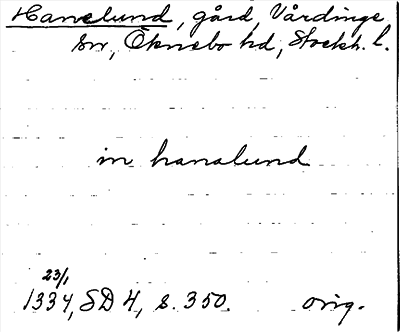 Hanelund, gård, Vårdinge
sn, Öknebo hd, Stockh. l.
in hanalund
23/1
1334, SD 4, s. 350. orig.